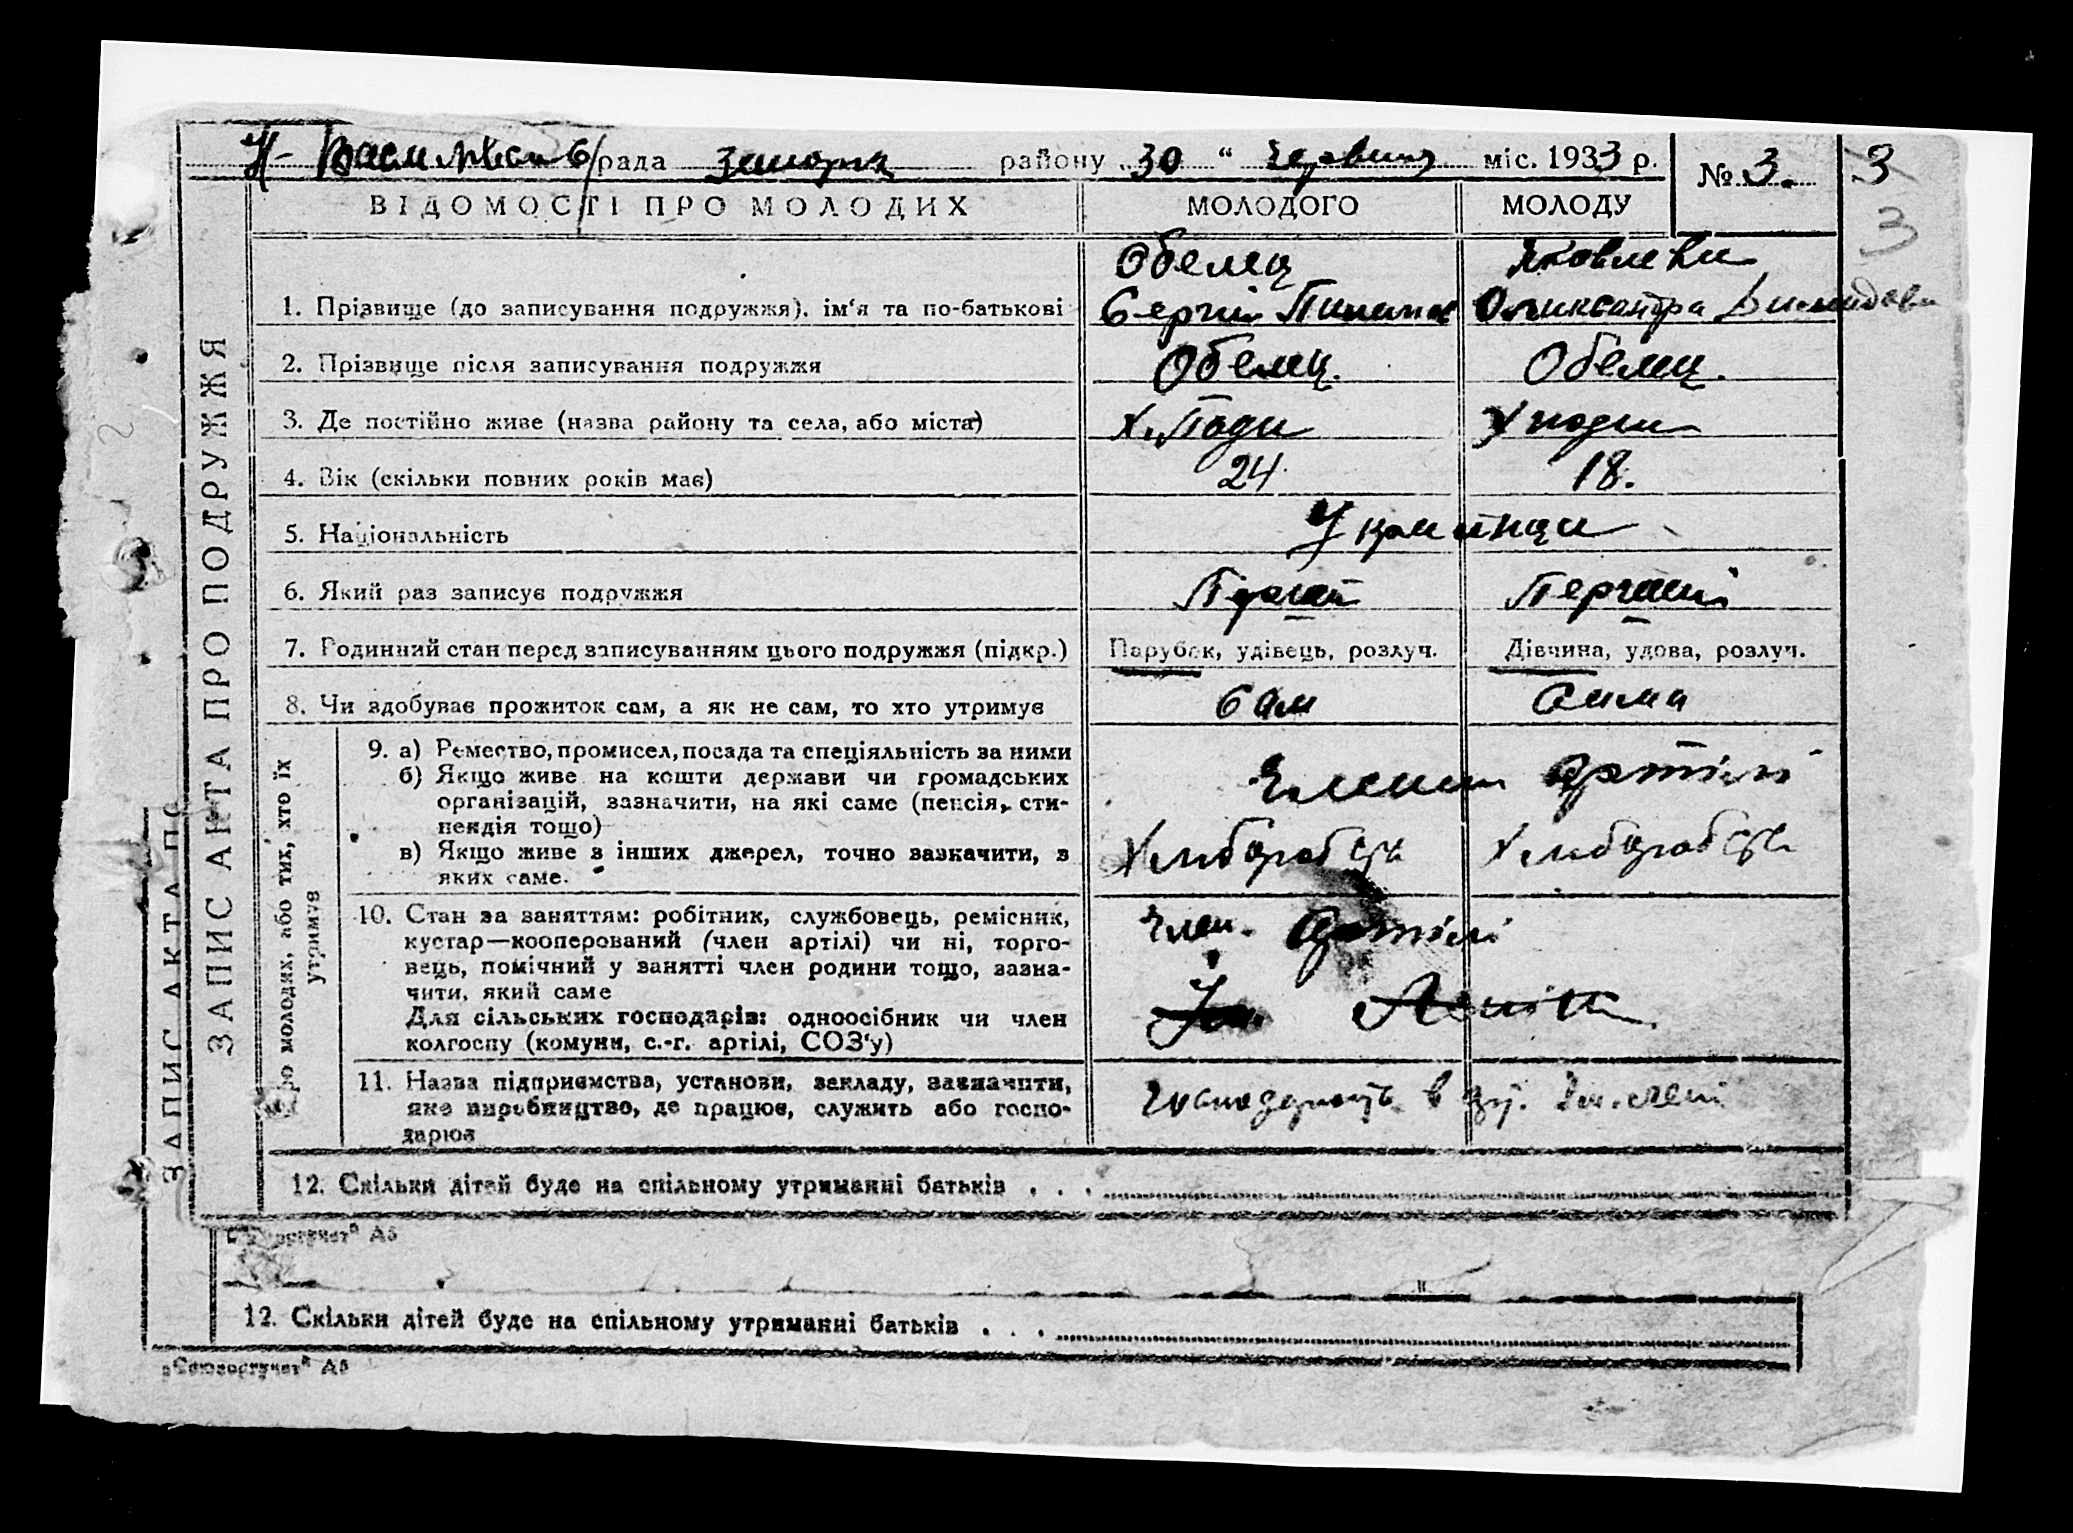 рада району 30 " червня міс. 1933 р. № 3. 3
3
ВІДОМОСТІ ПРО МОЛОДИХ МОЛОДОГО МОЛОДУ
ЗАПИС АКТА ПРО ПОДРУЖЖЯ
Обелец
1. Прізвище (до записування подружжя), ім'я та по-батькові Сергій
2. Прізвище після записування подружжя Обелец. Обелец.
3. Де постійно живе (назва району та села, або міста) Х. Поди
4. Вік (скільки повних років має) 24 18.
5. Національність Українци
6. Який раз записує подружжя Перший
7. Родинний стан перед записуванням цього подружжя (підкр.) Парубок, удівець, розлуч. Дівчина, удова, розлуч.
8. Чи здобуває прожиток сам, а як не сам, то хто утримує сам сама
Про молодих, або тих, хто їх
утримує
9. а) Ремество, промисел, посада та спеціяльність за ними
б) Якщо живе на кошти держави чи громадських
організацій, зазначити, на які саме (пенсія, сти-
пендія тощо)
Члени Артілі
в) Якщо живе з інших джерел, точно зазначити, з
яких саме.
Хлібороб Хлібороб
10. Стан за заняттям: робітник, службовець, ремісник,
кустар—кооперований (член артілі) чи ні, торго-
вець, помічний у занятті член родини тощо, зазна-
чити, який саме
Для сільських господарів: одноосібник чи член
колгоспу (комуни, с.-г. артілі, СОЗ'у)
Член. Артілі
Ім. Леніна
11. Назва підприємства, установи, закладу, зазначити,
яке виробництво, де працює, служить або госпо-
дарює
12. Скільки дітей буде на спільному утриманні батьків . . .
"Союзоргучет" А5
ЗАПИС АКТА ПО
12. Скільки дітей буде на спільному утриманні батьків . . .
"Союзоргучет" А5